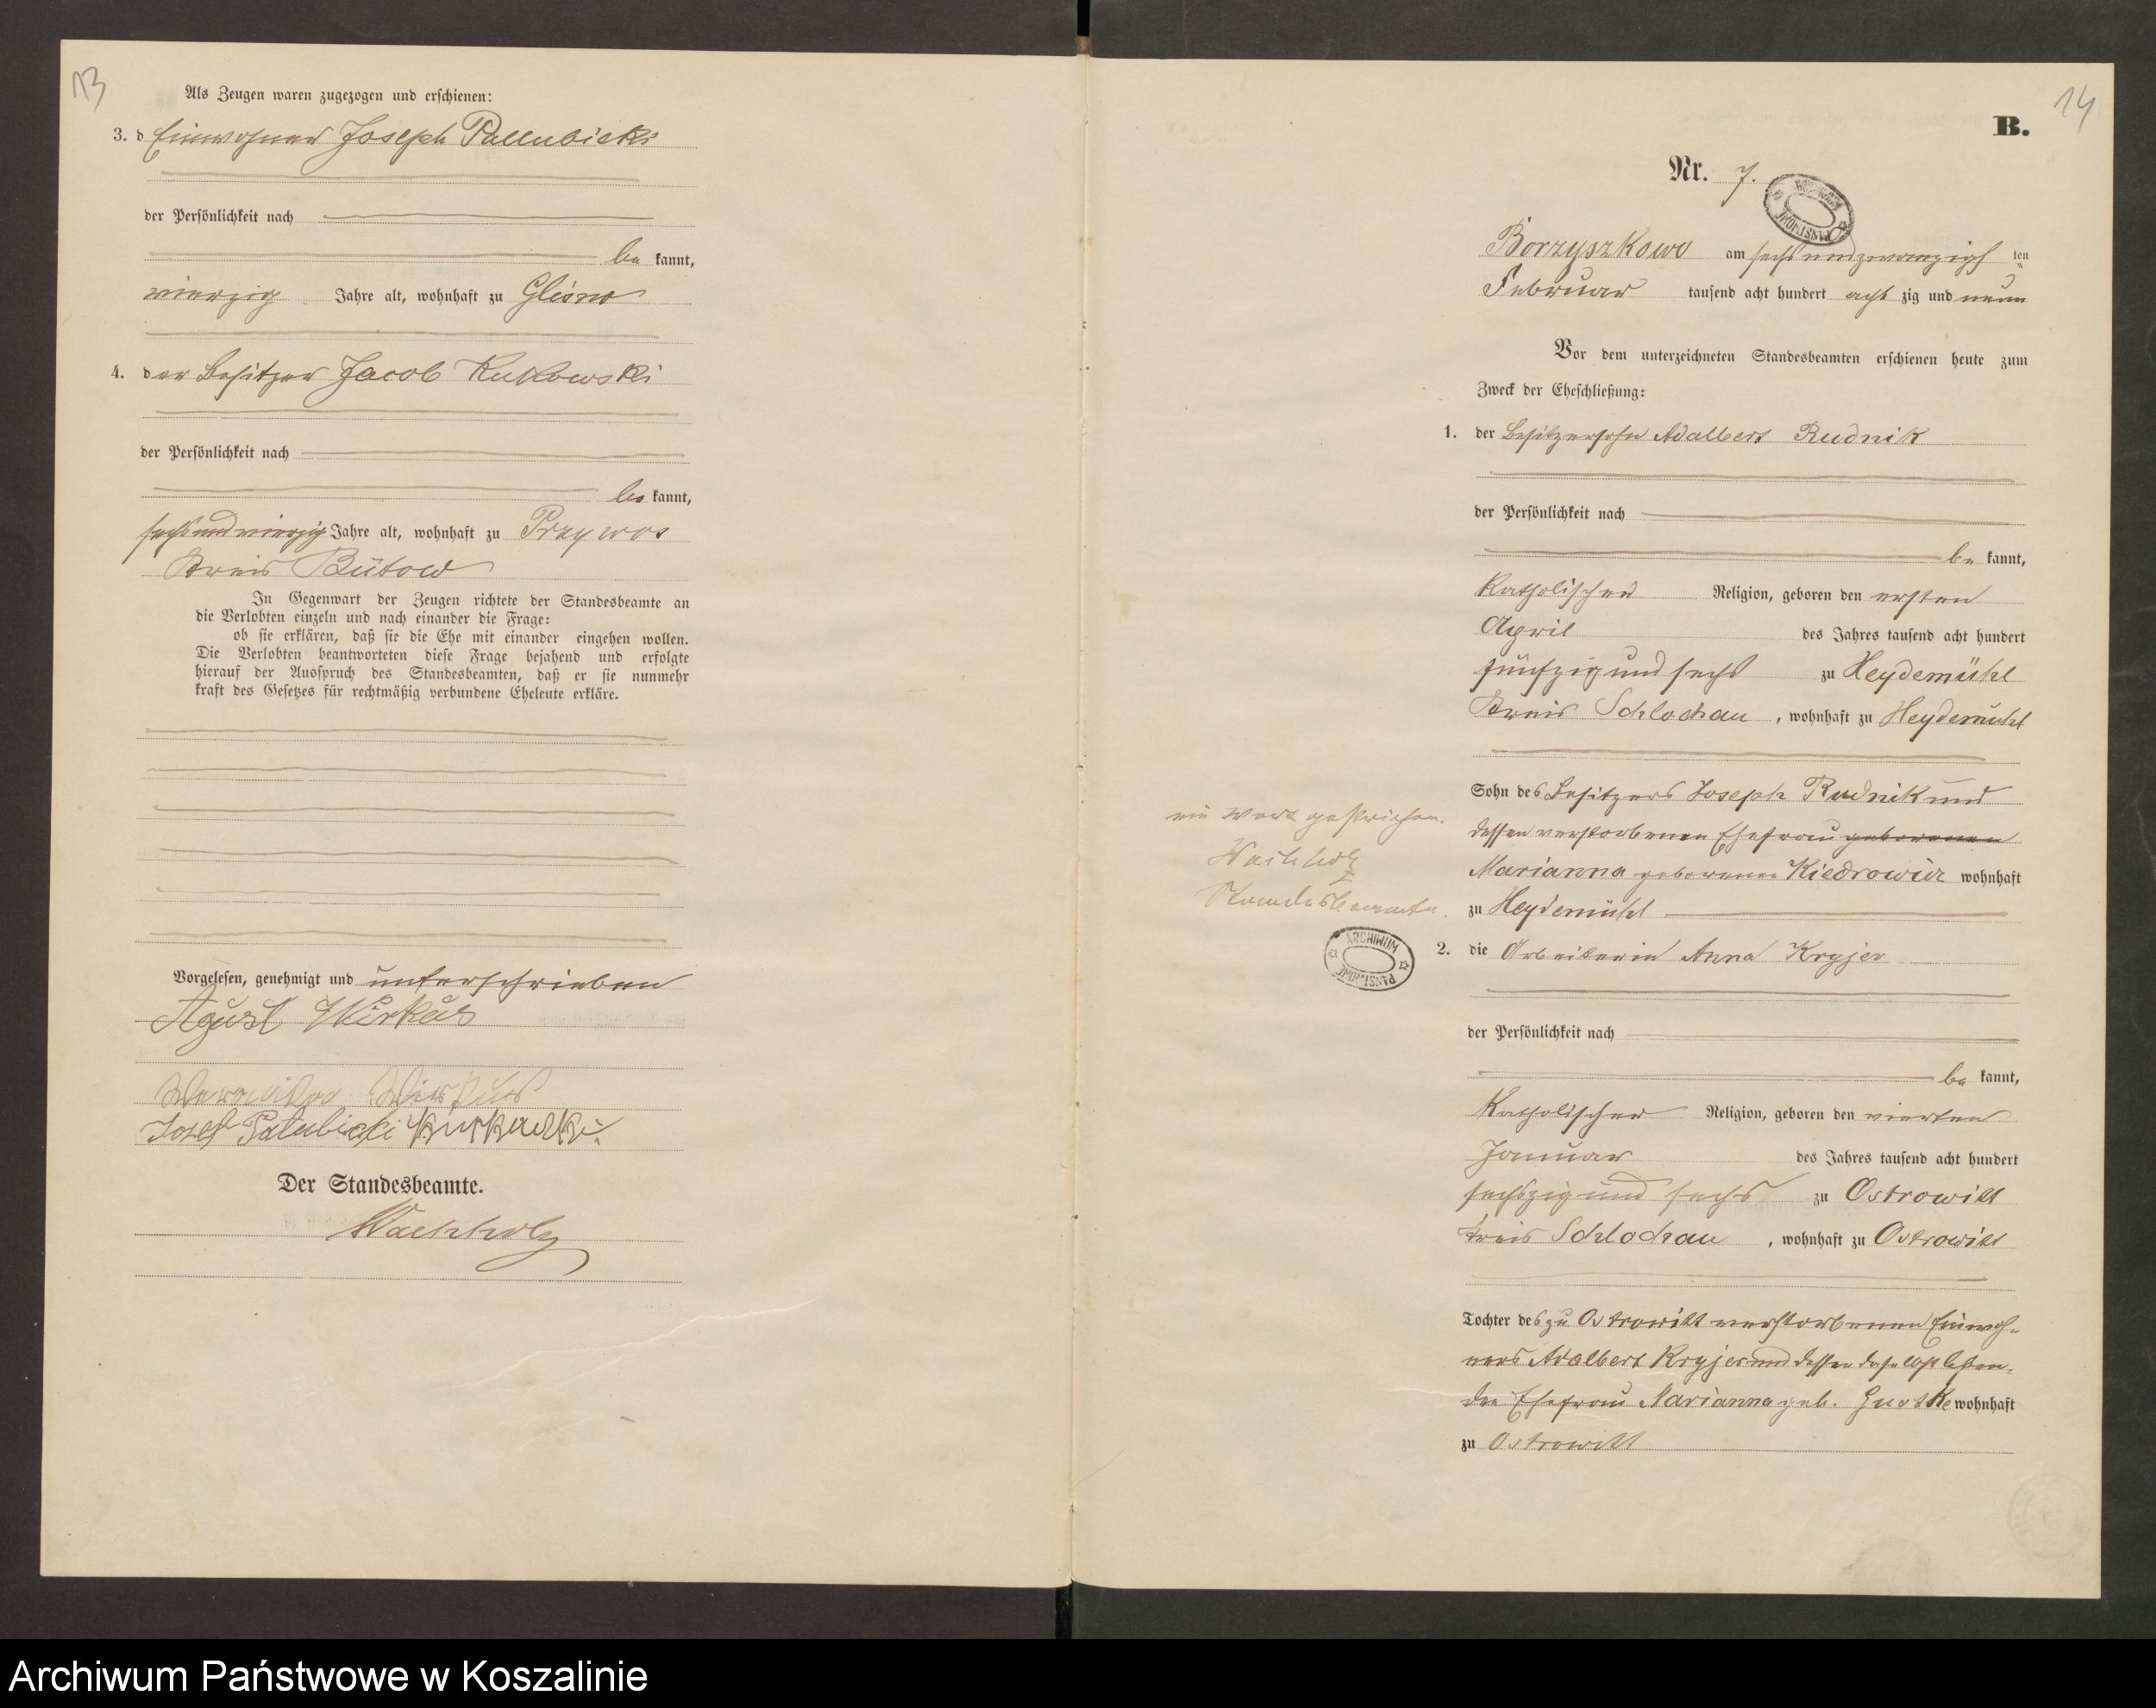 13
Als Zeugen waren zugezogen und erschienen:
3. d Einwohner Joseph Pallubicki
der Persönlichkeit nach
be kannt,
vierzig Jahre alt, wohnhaft zu Glisno
4. der Besitzer Jacob Kukowski
der Persönlichkeit nach
be kannt,
sechsundvierzig Jahre alt, wohnhaft zu Przywos
Kreis Bütow
In Gegenwart der Zeugen richtete der Standesbeamte an
die Verlobten einzeln und nach einander die Frage:
ob sie erklären, daß sie die Ehe mit einander eingehen wollen.
Die Verlobten beantworteten diese Frage bejahend und erfolgte
hierauf der Ausspruch des Standesbeamten, daß er sie nunmehr
kraft des Gesetzes für rechtmäßig verbundene Eheleute erkläre.
Vorgelesen, genehmigt und unterschrieben
Agust Wirkus
Weronika Wirkus
Josef Palubicki
Der Standesbeamte.
Wachholz
14
B.
Nr. 7.
Borzyszkowo am sechsundzwanzigs ten
Februar tausend acht hundert acht zig und neun
Vor dem unterzeichneten Standesbeamten erschienen heute zum
Zweck der Eheschließung:
1. der Besitzersohn Adalbert Rudnik
der Persönlichkeit nach
be kannt,
katholischer Religion, geboren den ersten
April des Jahres tausend acht hundert
fünfzig und sechs zu Heydemühl
Kreis Schlochau, wohnhaft zu Heydemühl
Sohn des Besitzers Joseph Rudnik und
dessen verstorbenen Ehefrau geborenen
Marianna geborenen Kiedrowicz wohnhaft
zu Heydemühl
ein Wort gestrichen.
Wachholz
Standesbeamte.
ARCHIWUM PAŃSTWOWE
2. die Arbeiterin Anna Kryjer
der Persönlichkeit nach
be kannt,
katholischer Religion, geboren den vierten
Januar des Jahres tausend acht hundert
sechszig und sechs zu Ostrowitt
Kreis Schlochau, wohnhaft zu Ostrowitt
Tochter des zu Ostrowitt verstorbenen Einwoh-
ners Adalbert Kryjer und dessen daselbst leben-
den Ehefrau Marianna geb. wohnhaft
zu Ostrowitt
Archiwum Państwowe w Koszalinie